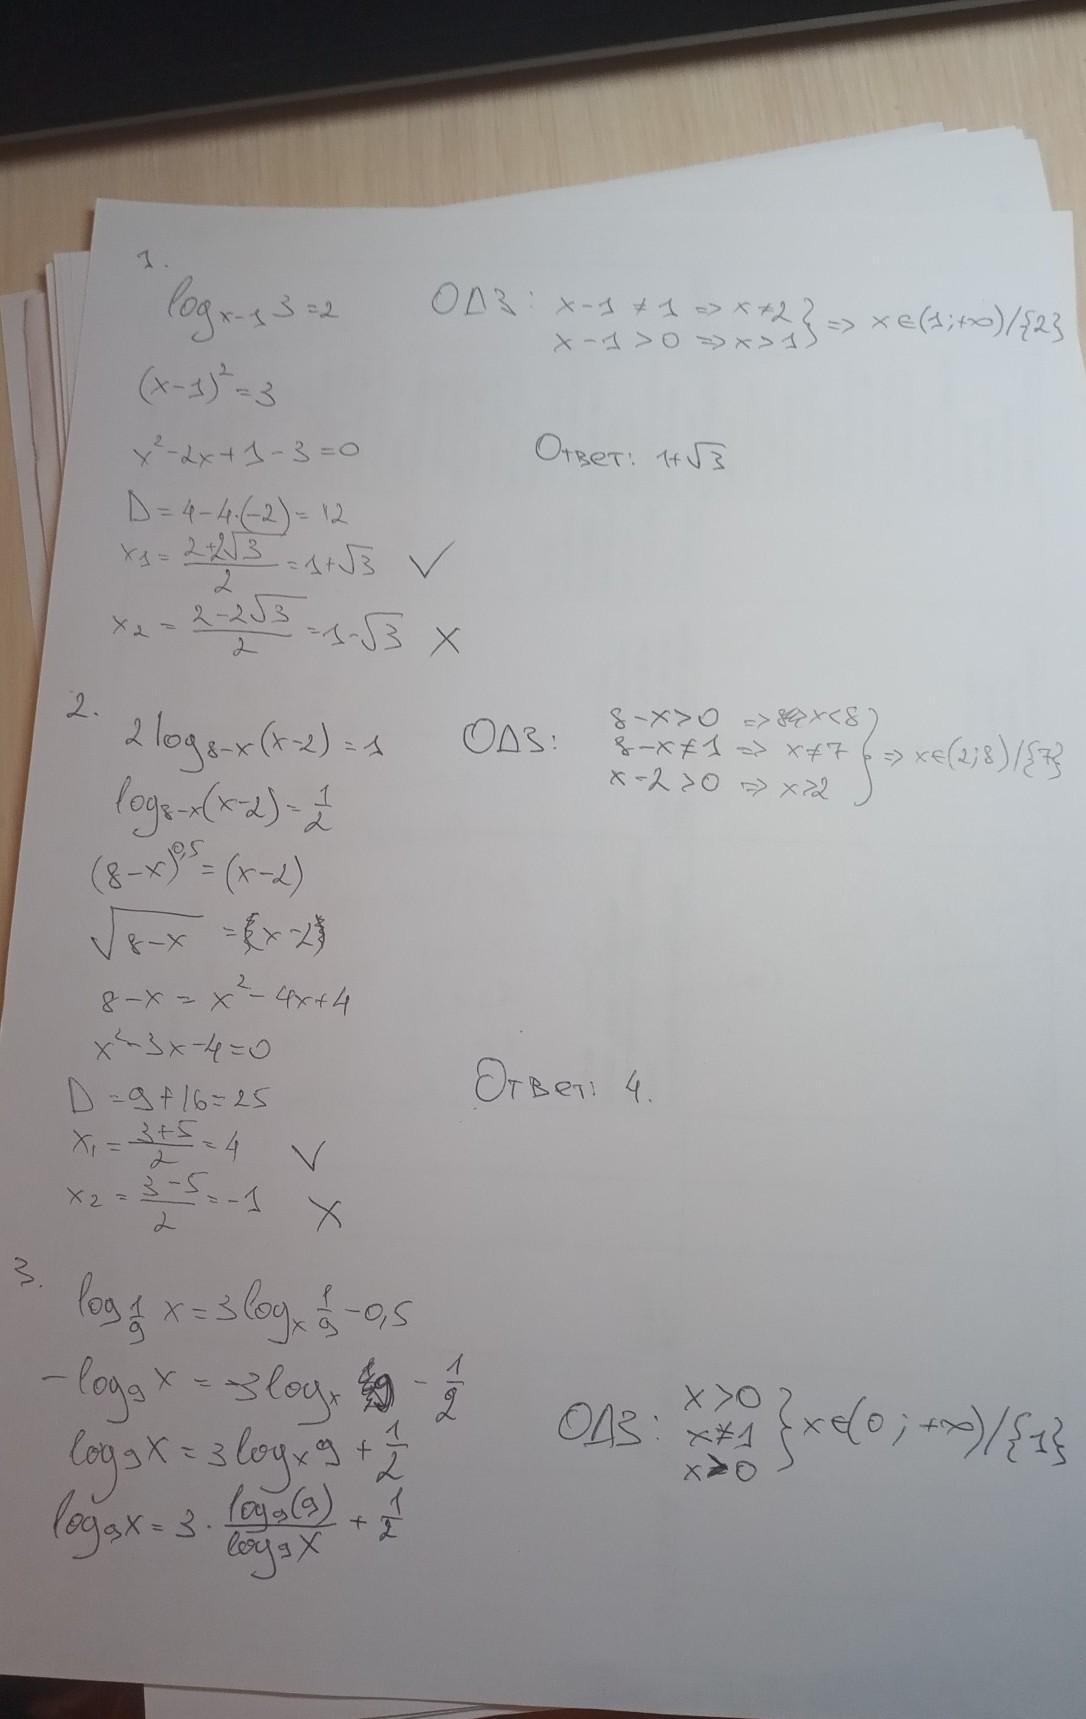 1.
log_{x-1} 3 = 2
ОДЗ: x-1 ≠ 1 => x ≠ 2 } => x∈(1;+∞)/{2}
x-1 > 0 => x > 1
(x-1)² = 3
x² - 2x + 1 - 3 = 0
Ответ: 1+√3
D = 4 - 4·(-2) = 12
x₁ = (2+2√3)/2 = 1+√3 ✓
x₂ = (2-2√3)/2 = 1-√3 X
2.
2log_{8-x}(x-2) = 1
ОДЗ: 8-x > 0 => x < 8
8-x ≠ 1 => x ≠ 7 } => x∈(2;8)/{7}
x-2 > 0 => x > 2
log_{8-x}(x-2) = 1/2
(8-x)^{0,5} = (x-2)
√(8-x) = x-2
8-x = x² - 4x + 4
x² - 3x - 4 = 0
D = 9 + 16 = 25
Ответ: 4.
x₁ = (3+5)/2 = 4 ✓
x₂ = (3-5)/2 = -1 X
3.
log_{1/9} x = 3log_x 1/9 - 0,5
-log₉ x = -3log_x 9 - 1/2
ОДЗ: x > 0
x ≠ 1 } x∈(0;+∞)/{1}
x > 0
log₉ x = 3log_x 9 + 1/2
log₉ x = 3 · log₉(9)/log₉ x + 1/2